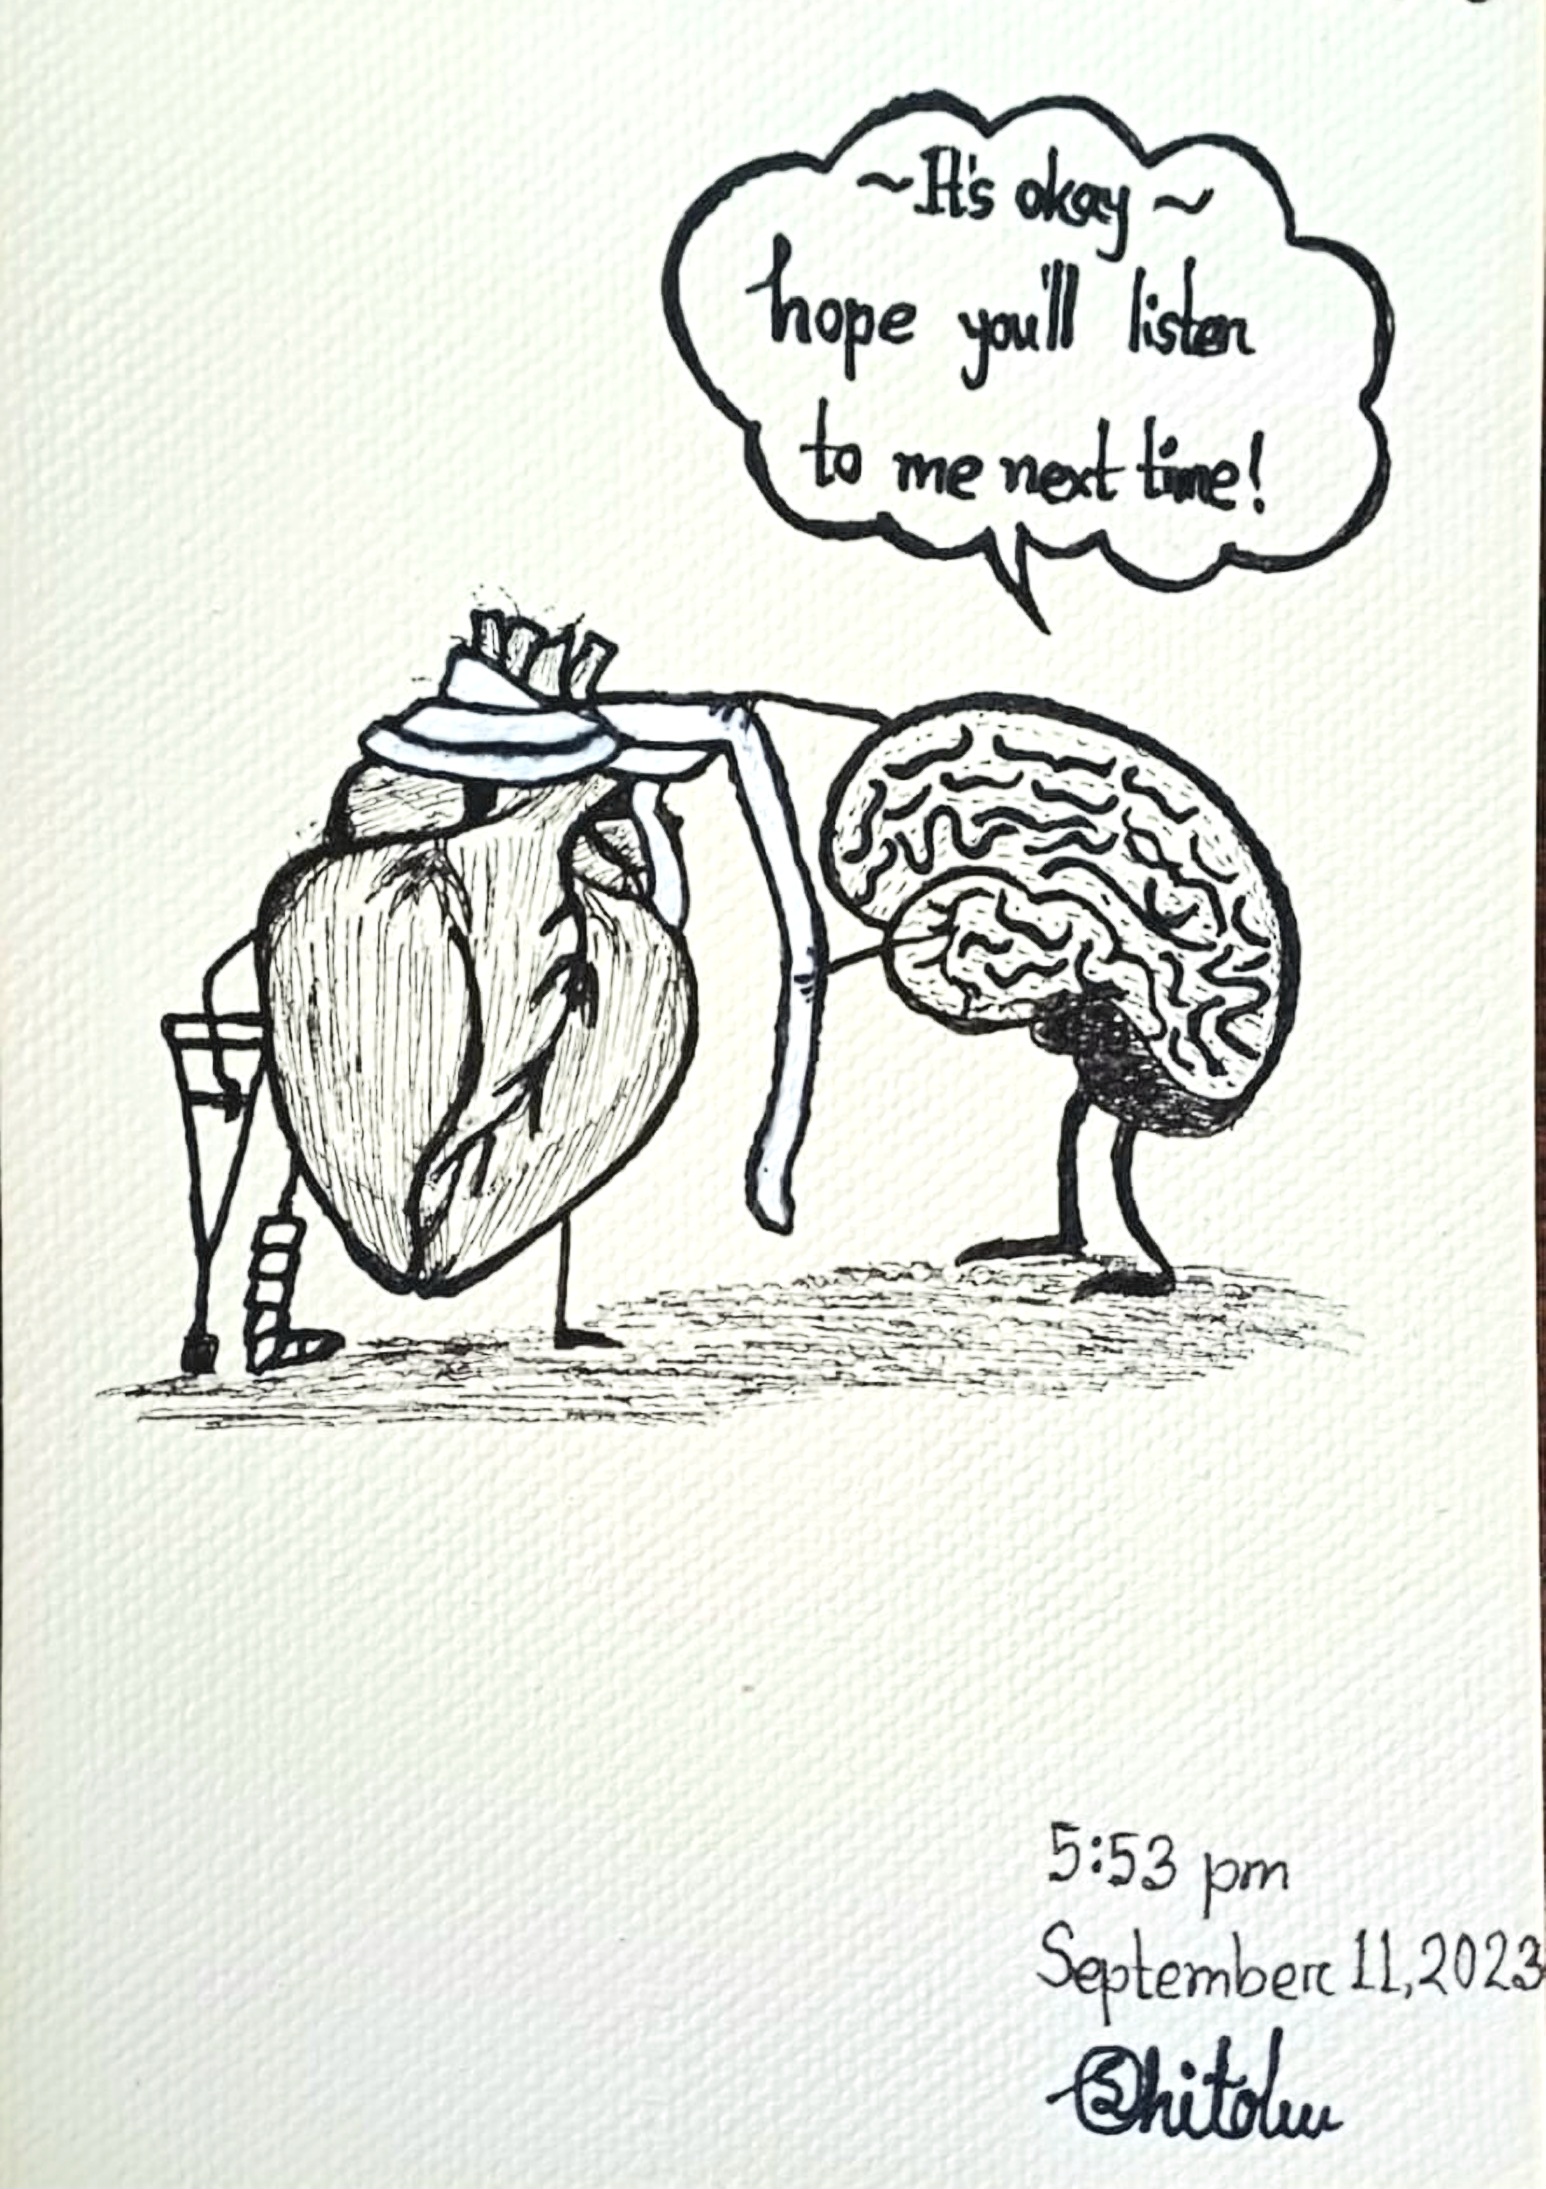 ~It's okay~
hope you'll listen
to me next time!
5:53 pm
September 11, 2023